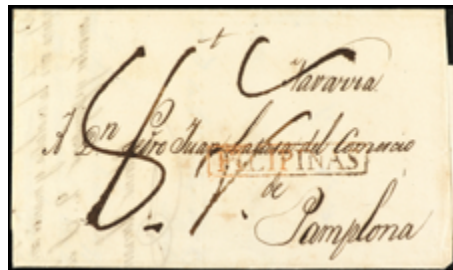 Navarra
A Dn Pedro Juan del Comercio
FILIPINAS
de
Pamplona